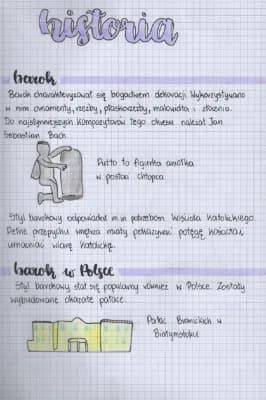 historia
barok
Barok charakteryzował się bogactwem dekoracji. Wykorzystywano
w nim ornamenty, rzeźby, płaskorzeźby, malowidła i złocenia.
Do najsłynniejszych kompozytorów tego okresu należał Jan
Sebastian Bach.
Putto to figurka aniołka
w postaci chłopca
Styl barokowy odpowiadał m.in potrzebom Kościoła Katolickiego.
Pełne przepychu wnętrza miały pokazywać potęgę Kościoła i
umacniać wiarę katolicką.
barok w Polsce
Styl barokowy stał się popularny również w Polsce. Zostały
wybudowane okazałe pałace.
Pałac Branickich w
Białymstoku